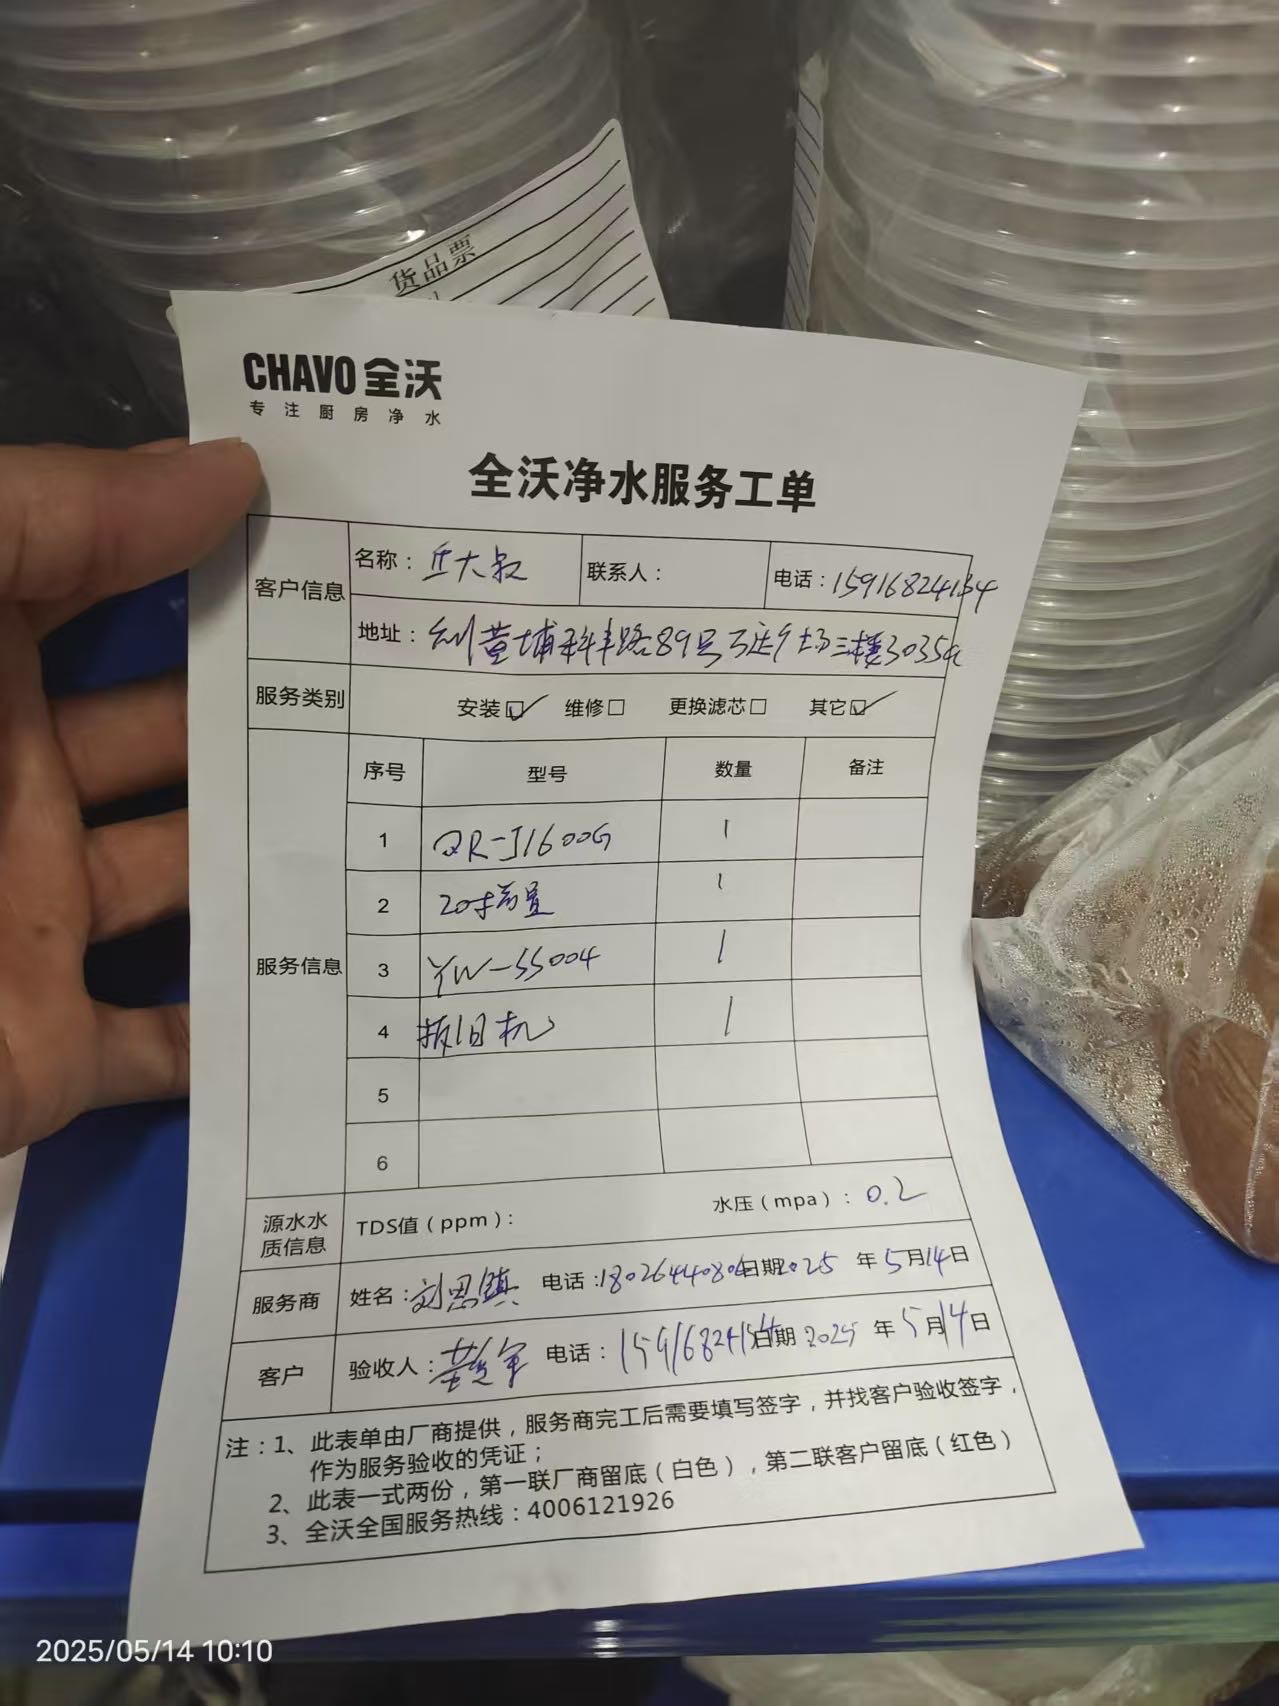 货品票
CHAVO 全沃
专注厨房净水
全沃净水服务工单
客户信息
名称： 大叔
联系人：
电话：15916824134
地址： 黄埔 路89号 三楼3035a
服务类别
安装☑ 维修□ 更换滤芯□ 其它☑
服务信息
序号 型号 数量 备注
1 QR-J1600G 1
2 20寸 1
3 YW-SS004 1
4 拆旧机 1
5
6
源水水质信息
TDS值（ppm）： 水压（mpa）：0.2
服务商
姓名：刘恩镇 电话：180264408 日期2025 年5月14日
客户
验收人： 电话：159168241 日期 2025 年5月14日
注：1、此表单由厂商提供，服务商完工后需要填写签字，并找客户验收签字，
作为服务验收的凭证；
2、此表一式两份，第一联厂商留底（白色），第二联客户留底（红色）
3、全沃全国服务热线：4006121926
2025/05/14 10:10